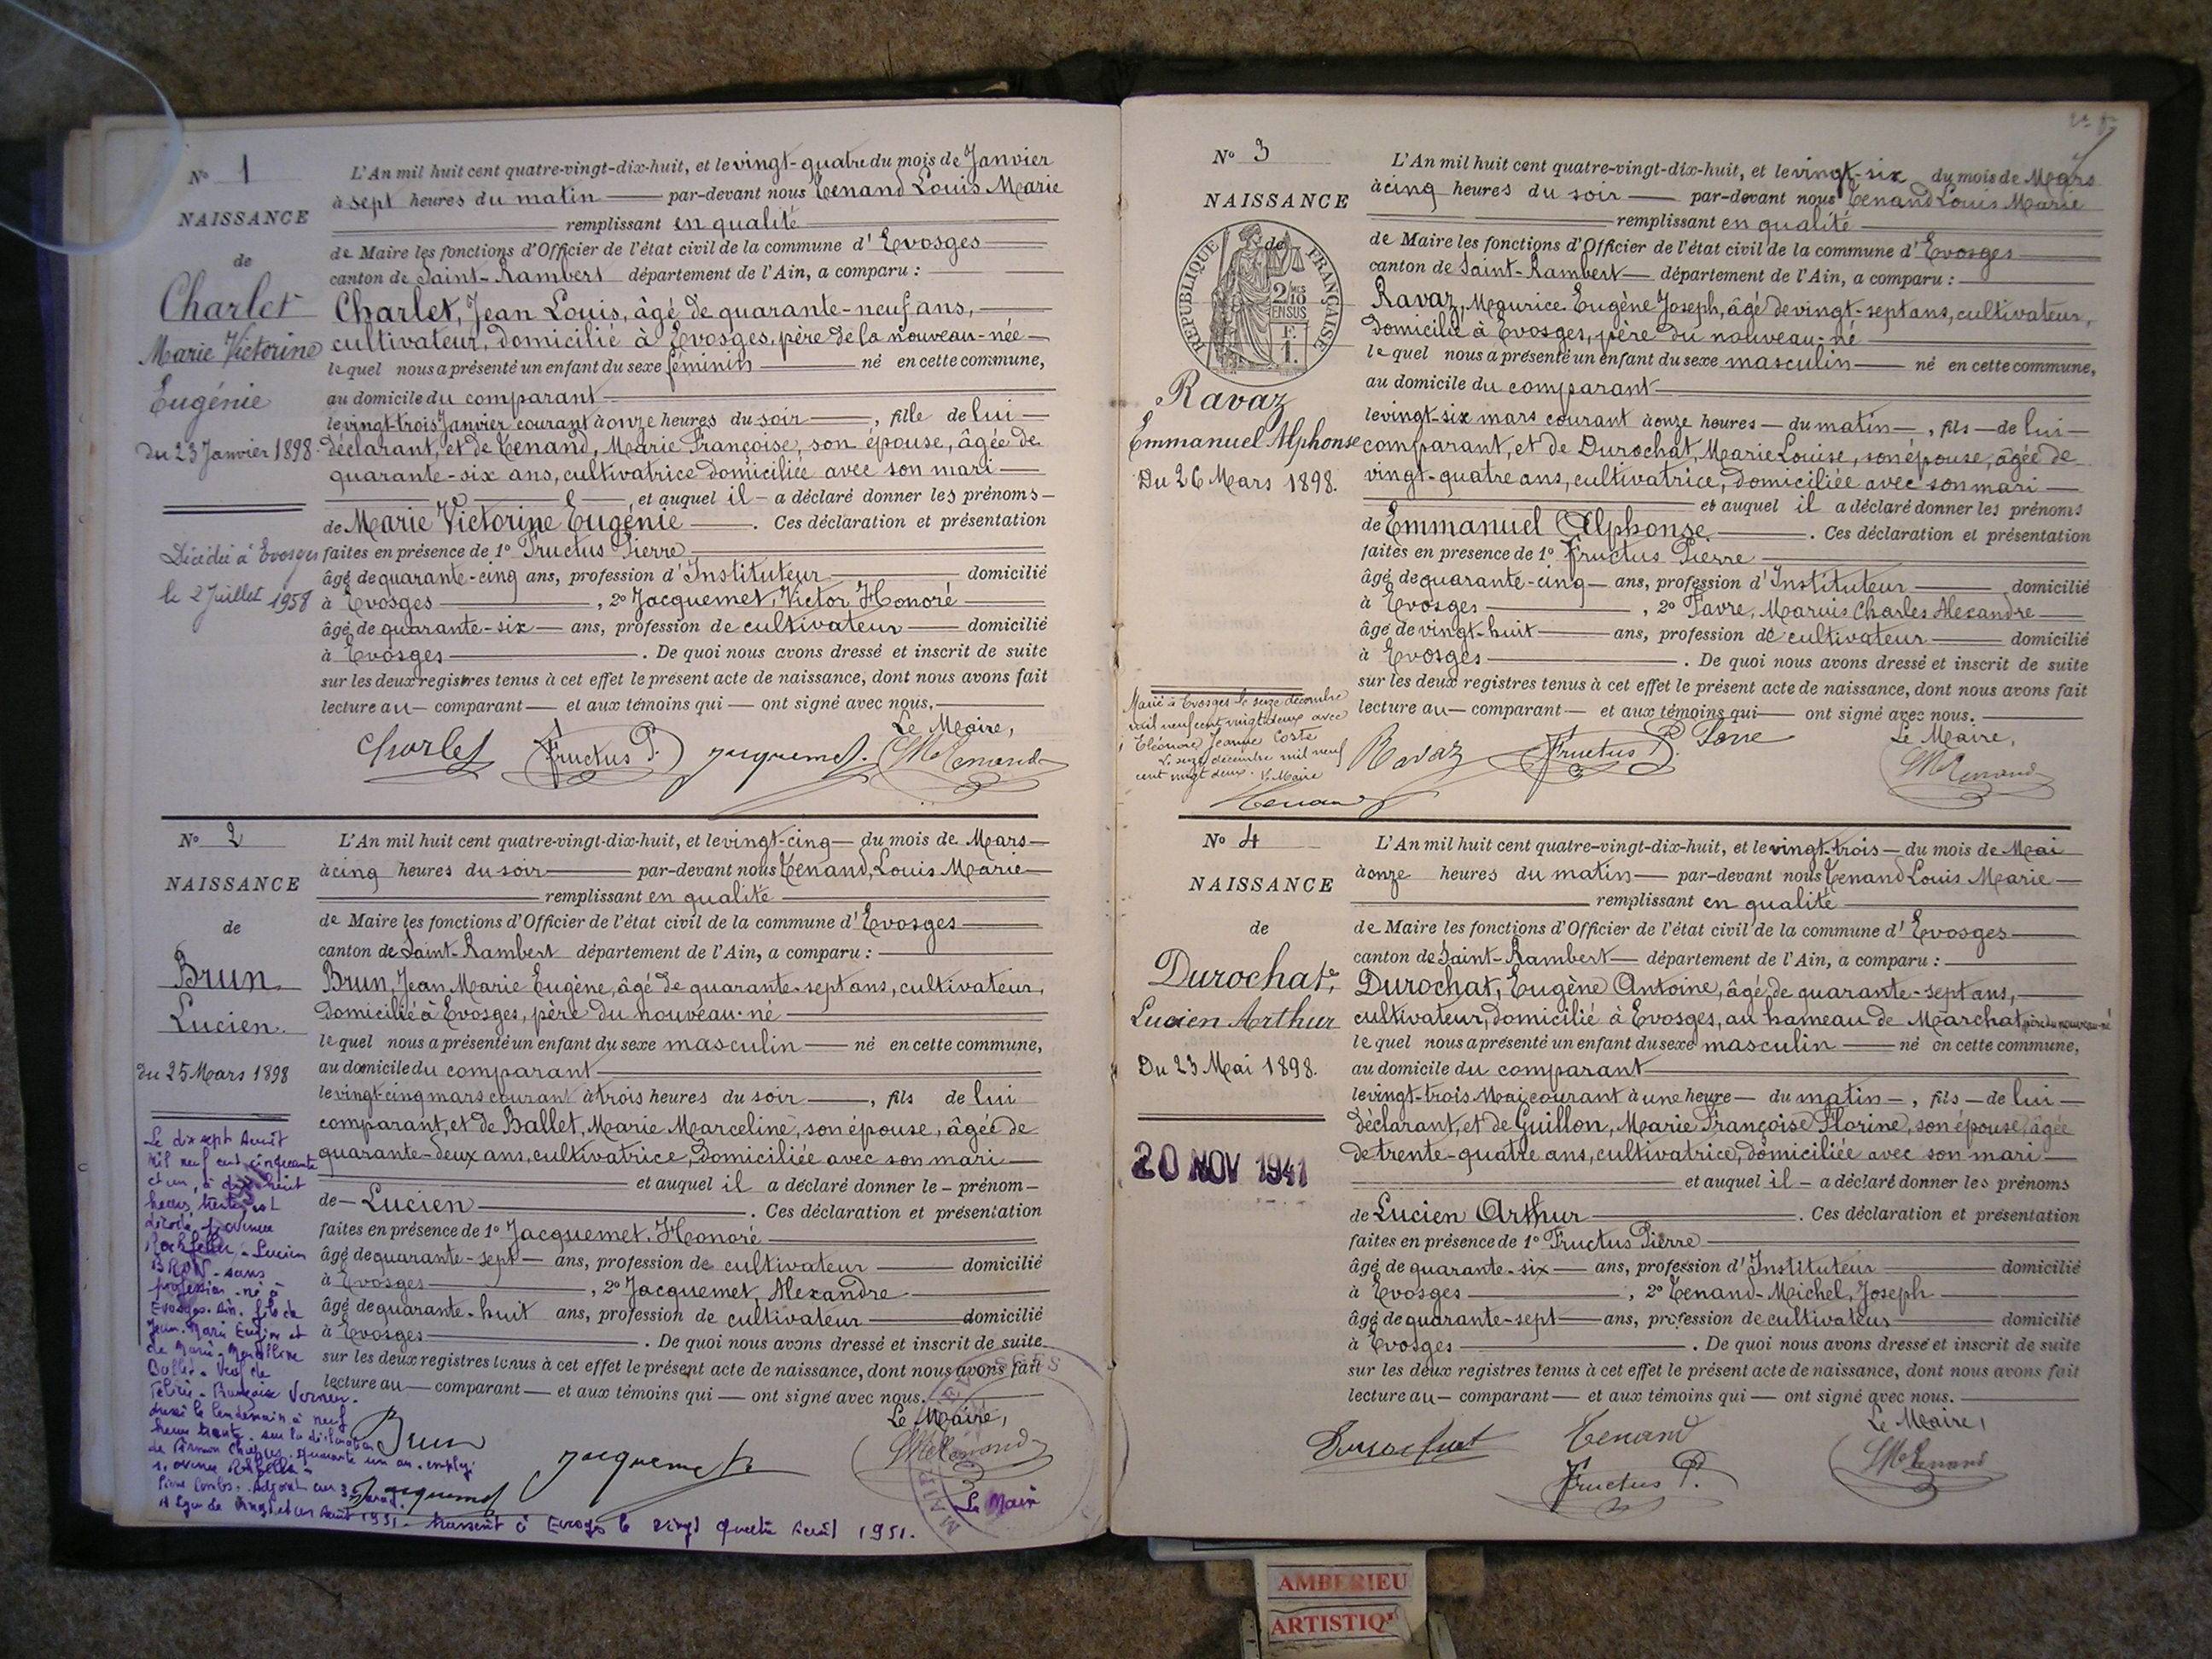 N° 1
NAISSANCE
de
Charlet
Marie Victorine
Eugénie
du 23 Janvier 1898.
Décédée à Evosges
le 2 Juillet 1958
L'An mil huit cent quatre-vingt-dix-huit, et le vingt-quatre du mois de Janvier
à sept heures du matin par-devant nous Tenand Louis Marie
remplissant en qualité
de Maire les fonctions d'Officier de l'état civil de la commune d'Evosges
canton de Saint-Rambert département de l'Ain, a comparu :
Charlet, Jean Louis, âgé de quarante-neuf ans,
cultivateur, domicilié à Evosges, père de la nouveau-née
lequel nous a présenté un enfant du sexe féminin né en cette commune,
au domicile du comparant
le vingt-trois Janvier courant à onze heures du soir, fille de lui
déclarant, et de Tenand, Marie Françoise, son épouse, âgée de
quarante-six ans, cultivatrice domiciliée avec son mari
et auquel il a déclaré donner les prénoms
de Marie Victorine Eugénie. Ces déclaration et présentation
faites en présence de 1° Fructus Pierre
âgé de quarante-cinq ans, profession d'Instituteur domicilié
à Evosges, 2° Jacquemet, Victor Honoré
âgé de quarante-six ans, profession de cultivateur domicilié
à Evosges. De quoi nous avons dressé et inscrit de suite
sur les deux registres tenus à cet effet le présent acte de naissance, dont nous avons fait
lecture au comparant et aux témoins qui ont signé avec nous.
Le Maire,
Charlet Fructus P. Jacquemet. Tenand
N° 2
NAISSANCE
de
Brun
Lucien.
du 25 Mars 1898
Le dix sept Août
mil neuf cent cinquante
et un, à dix huit
heures trente est
décédé, avenue
Rockfeller - Lucien
BRUN - sans
profession - né à
Evosges - Ain. fils de
Jean-Marie Eugène et
de Marie-Marcelline
Ballet - Veuf de
Françoise
dressé le lendemain à neuf
heures trente. sur la déclaration
de quarante un ans. employé
avenue Rockfeller
Adjoint
à Lyon le vingt et un Août 1951. Transcrit à Evosges le vingt quatre Août 1951.
L'An mil huit cent quatre-vingt-dix-huit, et le vingt-cinq du mois de Mars
à cinq heures du soir par-devant nous Tenand, Louis Marie
remplissant en qualité
de Maire les fonctions d'Officier de l'état civil de la commune d'Evosges
canton de Saint-Rambert département de l'Ain, a comparu :
Brun, Jean Marie Eugène, âgé de quarante-sept ans, cultivateur,
domicilié à Evosges, père du nouveau-né
lequel nous a présenté un enfant du sexe masculin né en cette commune,
au domicile du comparant
le vingt-cinq mars courant à trois heures du soir, fils de lui
comparant, et de Ballet, Marie Marceline, son épouse, âgée de
quarante-deux ans, cultivatrice, domiciliée avec son mari
et auquel il a déclaré donner le prénom
de Lucien. Ces déclaration et présentation
faites en présence de 1° Jacquemet, Honoré
âgé de quarante-sept ans, profession de cultivateur domicilié
à Evosges, 2° Jacquemet, Alexandre
âgé de quarante-huit ans, profession de cultivateur domicilié
à Evosges. De quoi nous avons dressé et inscrit de suite
sur les deux registres tenus à cet effet le présent acte de naissance, dont nous avons fait
lecture au comparant et aux témoins qui ont signé avec nous.
Le Maire,
Brun Jacquemet Tenand
Jacquemet
Le Maire
N° 3
NAISSANCE
de
RÉPUBLIQUE FRANÇAISE
2/10 MES
EN SUS
F.
1.
Ravaz
Emmanuel Alphonse
Du 26 Mars 1898.
Marié à Evosges le seize décembre
mil neuf cent vingt deux avec
Eléonore Jeanne Coste
Le seize décembre mil neuf
cent vingt deux. Le Maire
Tenand
L'An mil huit cent quatre-vingt-dix-huit, et le vingt-six du mois de Mars
à cinq heures du soir par-devant nous Tenand Louis Marie
remplissant en qualité
de Maire les fonctions d'Officier de l'état civil de la commune d'Evosges
canton de Saint-Rambert département de l'Ain, a comparu :
Ravaz, Maurice Eugène Joseph, âgé de vingt-sept ans, cultivateur,
domicilié à Evosges, père du nouveau-né
lequel nous a présenté un enfant du sexe masculin né en cette commune,
au domicile du comparant
le vingt-six mars courant à onze heures du matin, fils de lui
comparant, et de Durochat, Marie Louise, son épouse, âgée de
vingt-quatre ans, cultivatrice, domiciliée avec son mari
et auquel il a déclaré donner les prénoms
de Emmanuel Alphonse. Ces déclaration et présentation
faites en présence de 1° Fructus Pierre
âgé de quarante-cinq ans, profession d'Instituteur domicilié
à Evosges, 2° Favre, Maruis Charles Alexandre
âgé de vingt-huit ans, profession de cultivateur domicilié
à Evosges. De quoi nous avons dressé et inscrit de suite
sur les deux registres tenus à cet effet le présent acte de naissance, dont nous avons fait
lecture au comparant et aux témoins qui ont signé avec nous.
Le Maire,
Ravaz Fructus P. Favre Tenand
N° 4
NAISSANCE
de
Durochat,
Lucien Arthur
Du 23 Mai 1898.
20 NOV 1941
L'An mil huit cent quatre-vingt-dix-huit, et le vingt-trois du mois de Mai
à onze heures du matin par-devant nous Tenand Louis Marie
remplissant en qualité
de Maire les fonctions d'Officier de l'état civil de la commune d'Evosges
canton de Saint-Rambert département de l'Ain, a comparu :
Durochat, Eugène Antoine, âgé de quarante-sept ans,
cultivateur, domicilié à Evosges, au hameau de Marchat, père du nouveau-né
lequel nous a présenté un enfant du sexe masculin né en cette commune,
au domicile du comparant
le vingt-trois Mai courant à une heure du matin, fils de lui
déclarant, et de Guillon, Marie Françoise Florine, son épouse, âgée
de trente-quatre ans, cultivatrice, domiciliée avec son mari
et auquel il a déclaré donner les prénoms
de Lucien Arthur. Ces déclaration et présentation
faites en présence de 1° Fructus Pierre
âgé de quarante-six ans, profession d'Instituteur domicilié
à Evosges, 2° Tenand-Michel, Joseph
âgé de quarante-sept ans, profession de cultivateur domicilié
à Evosges. De quoi nous avons dressé et inscrit de suite
sur les deux registres tenus à cet effet le présent acte de naissance, dont nous avons fait
lecture au comparant et aux témoins qui ont signé avec nous.
Le Maire,
Durochat Tenand Tenand
Fructus P.
AMBERIEU
ARTISTIQ